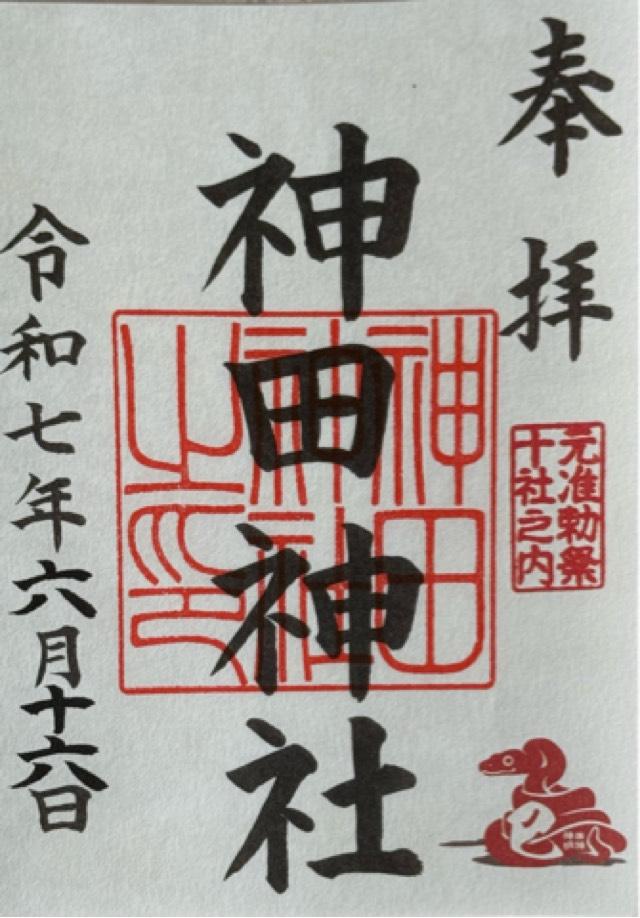 奉拝
元准勅祭
十社之内
巳
神田神社
神田
神社
之印
令和七年六月十六日